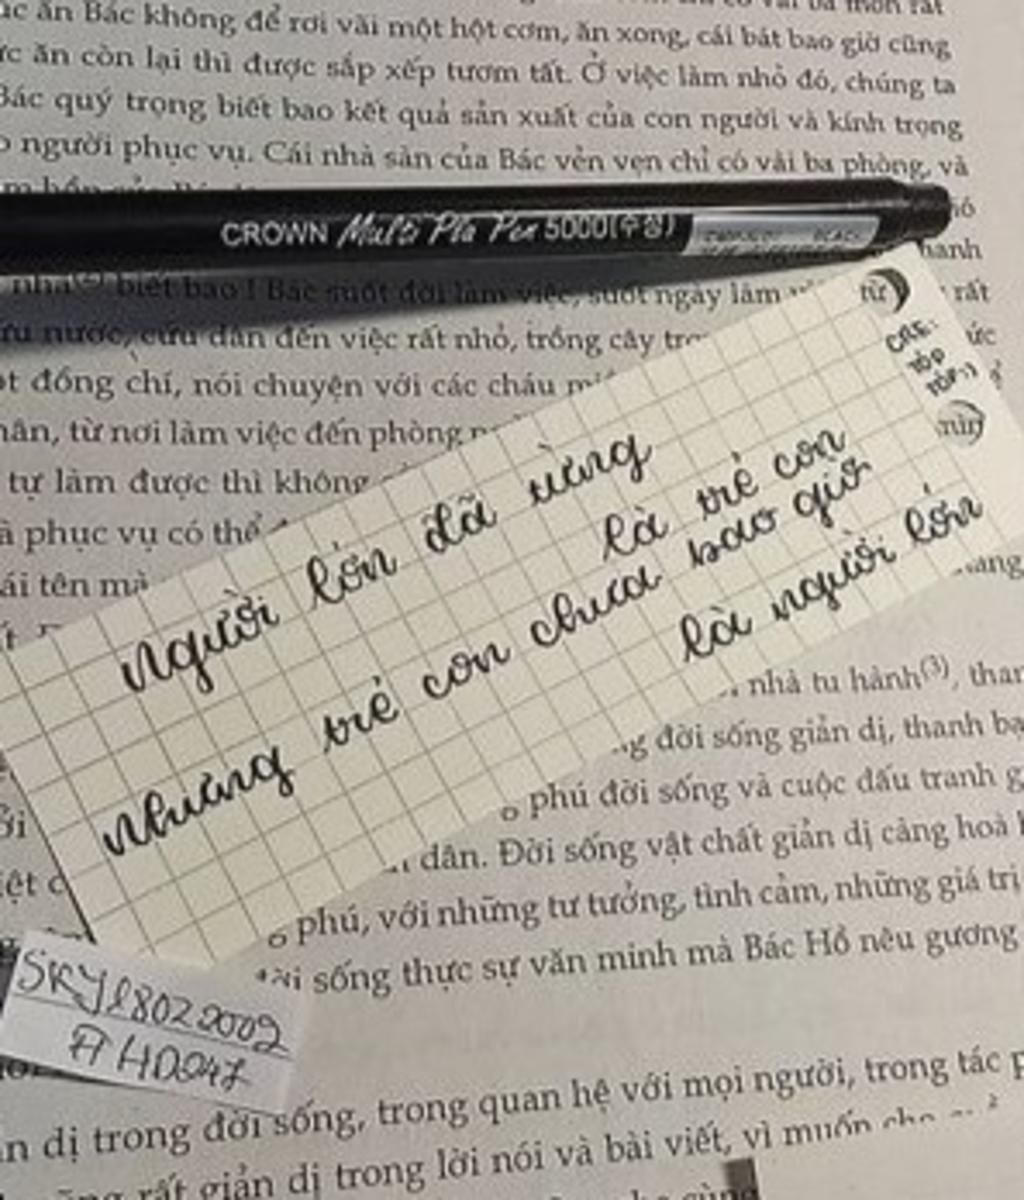 ăn Bác không để rơi vãi một hột cơm, ăn xong, cái bát bao giờ cũng
ăn còn lại thì được sắp xếp tươm tất. Ở việc làm nhỏ đó, chúng ta
Bác quý trọng biết bao kết quả sản xuất của con người và kính trọng
người phục vụ. Cái nhà sàn của Bác vẻn vẹn chỉ có vài ba phòng, và
CROWN Multi Pla Pen 5000(수성)
biết bao! Bác suốt đời làm việc, suốt ngày làm từ rất
nước, cứu dân đến việc rất nhỏ, trồng cây
đồng chí, nói chuyện với các cháu
từ nơi làm việc đến phòng
tự làm được thì không
phục vụ có thể
tên mà
CRE:
TÓP
TÓP:)
Người lớn đã từng
là trẻ con
Nhưng trẻ con chưa bao giờ
là người lớn
nhà tu hành(3),
đời sống giản dị, thanh
phú đời sống và cuộc đấu tranh
dân. Đời sống vật chất giản dị càng hoà
phú, với những tư tưởng, tình cảm, những giá trị
sống thực sự văn minh mà Bác Hồ nêu gương
SKY28022009
#HD047
dị trong đời sống, trong quan hệ với mọi người, trong tác
rất giản dị trong lời nói và bài viết, vì muốn